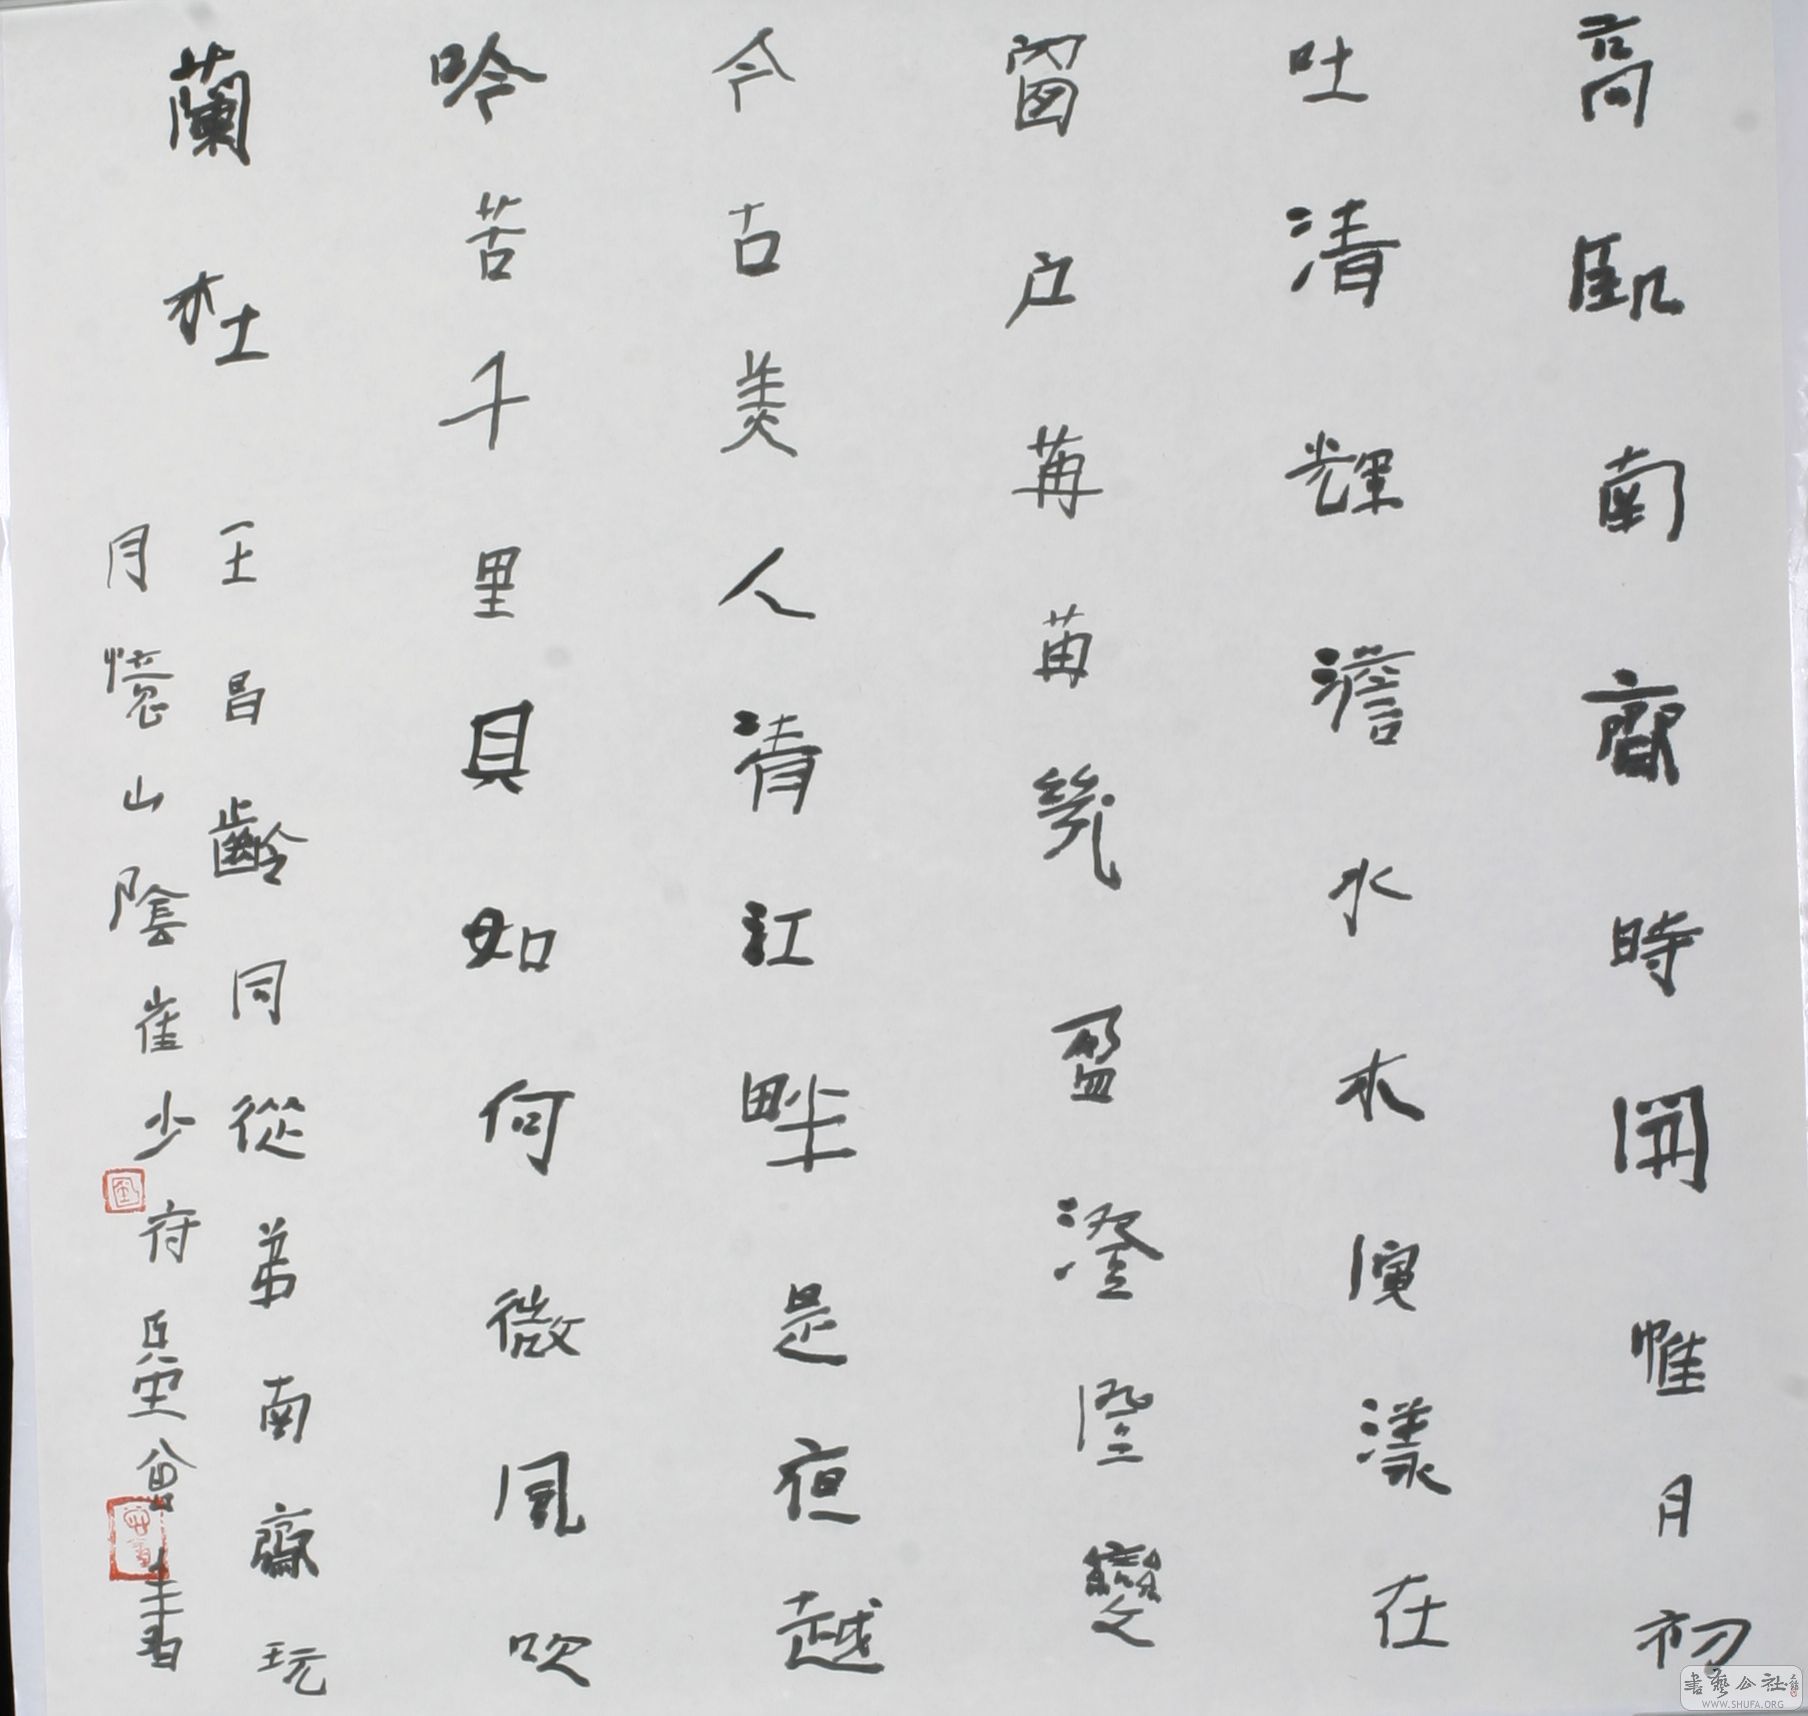 高臥南齋時開帷月初
吐清輝澹水木演漾在
窗户苒苒幾盈澄澄變
今古美人清江畔是夜越
吟苦千里其如何微風吹
蘭杜
王昌齡同從弟南齋玩
月憶山陰崔少府曾書
書藝公社
WWW.SHUFA.ORG